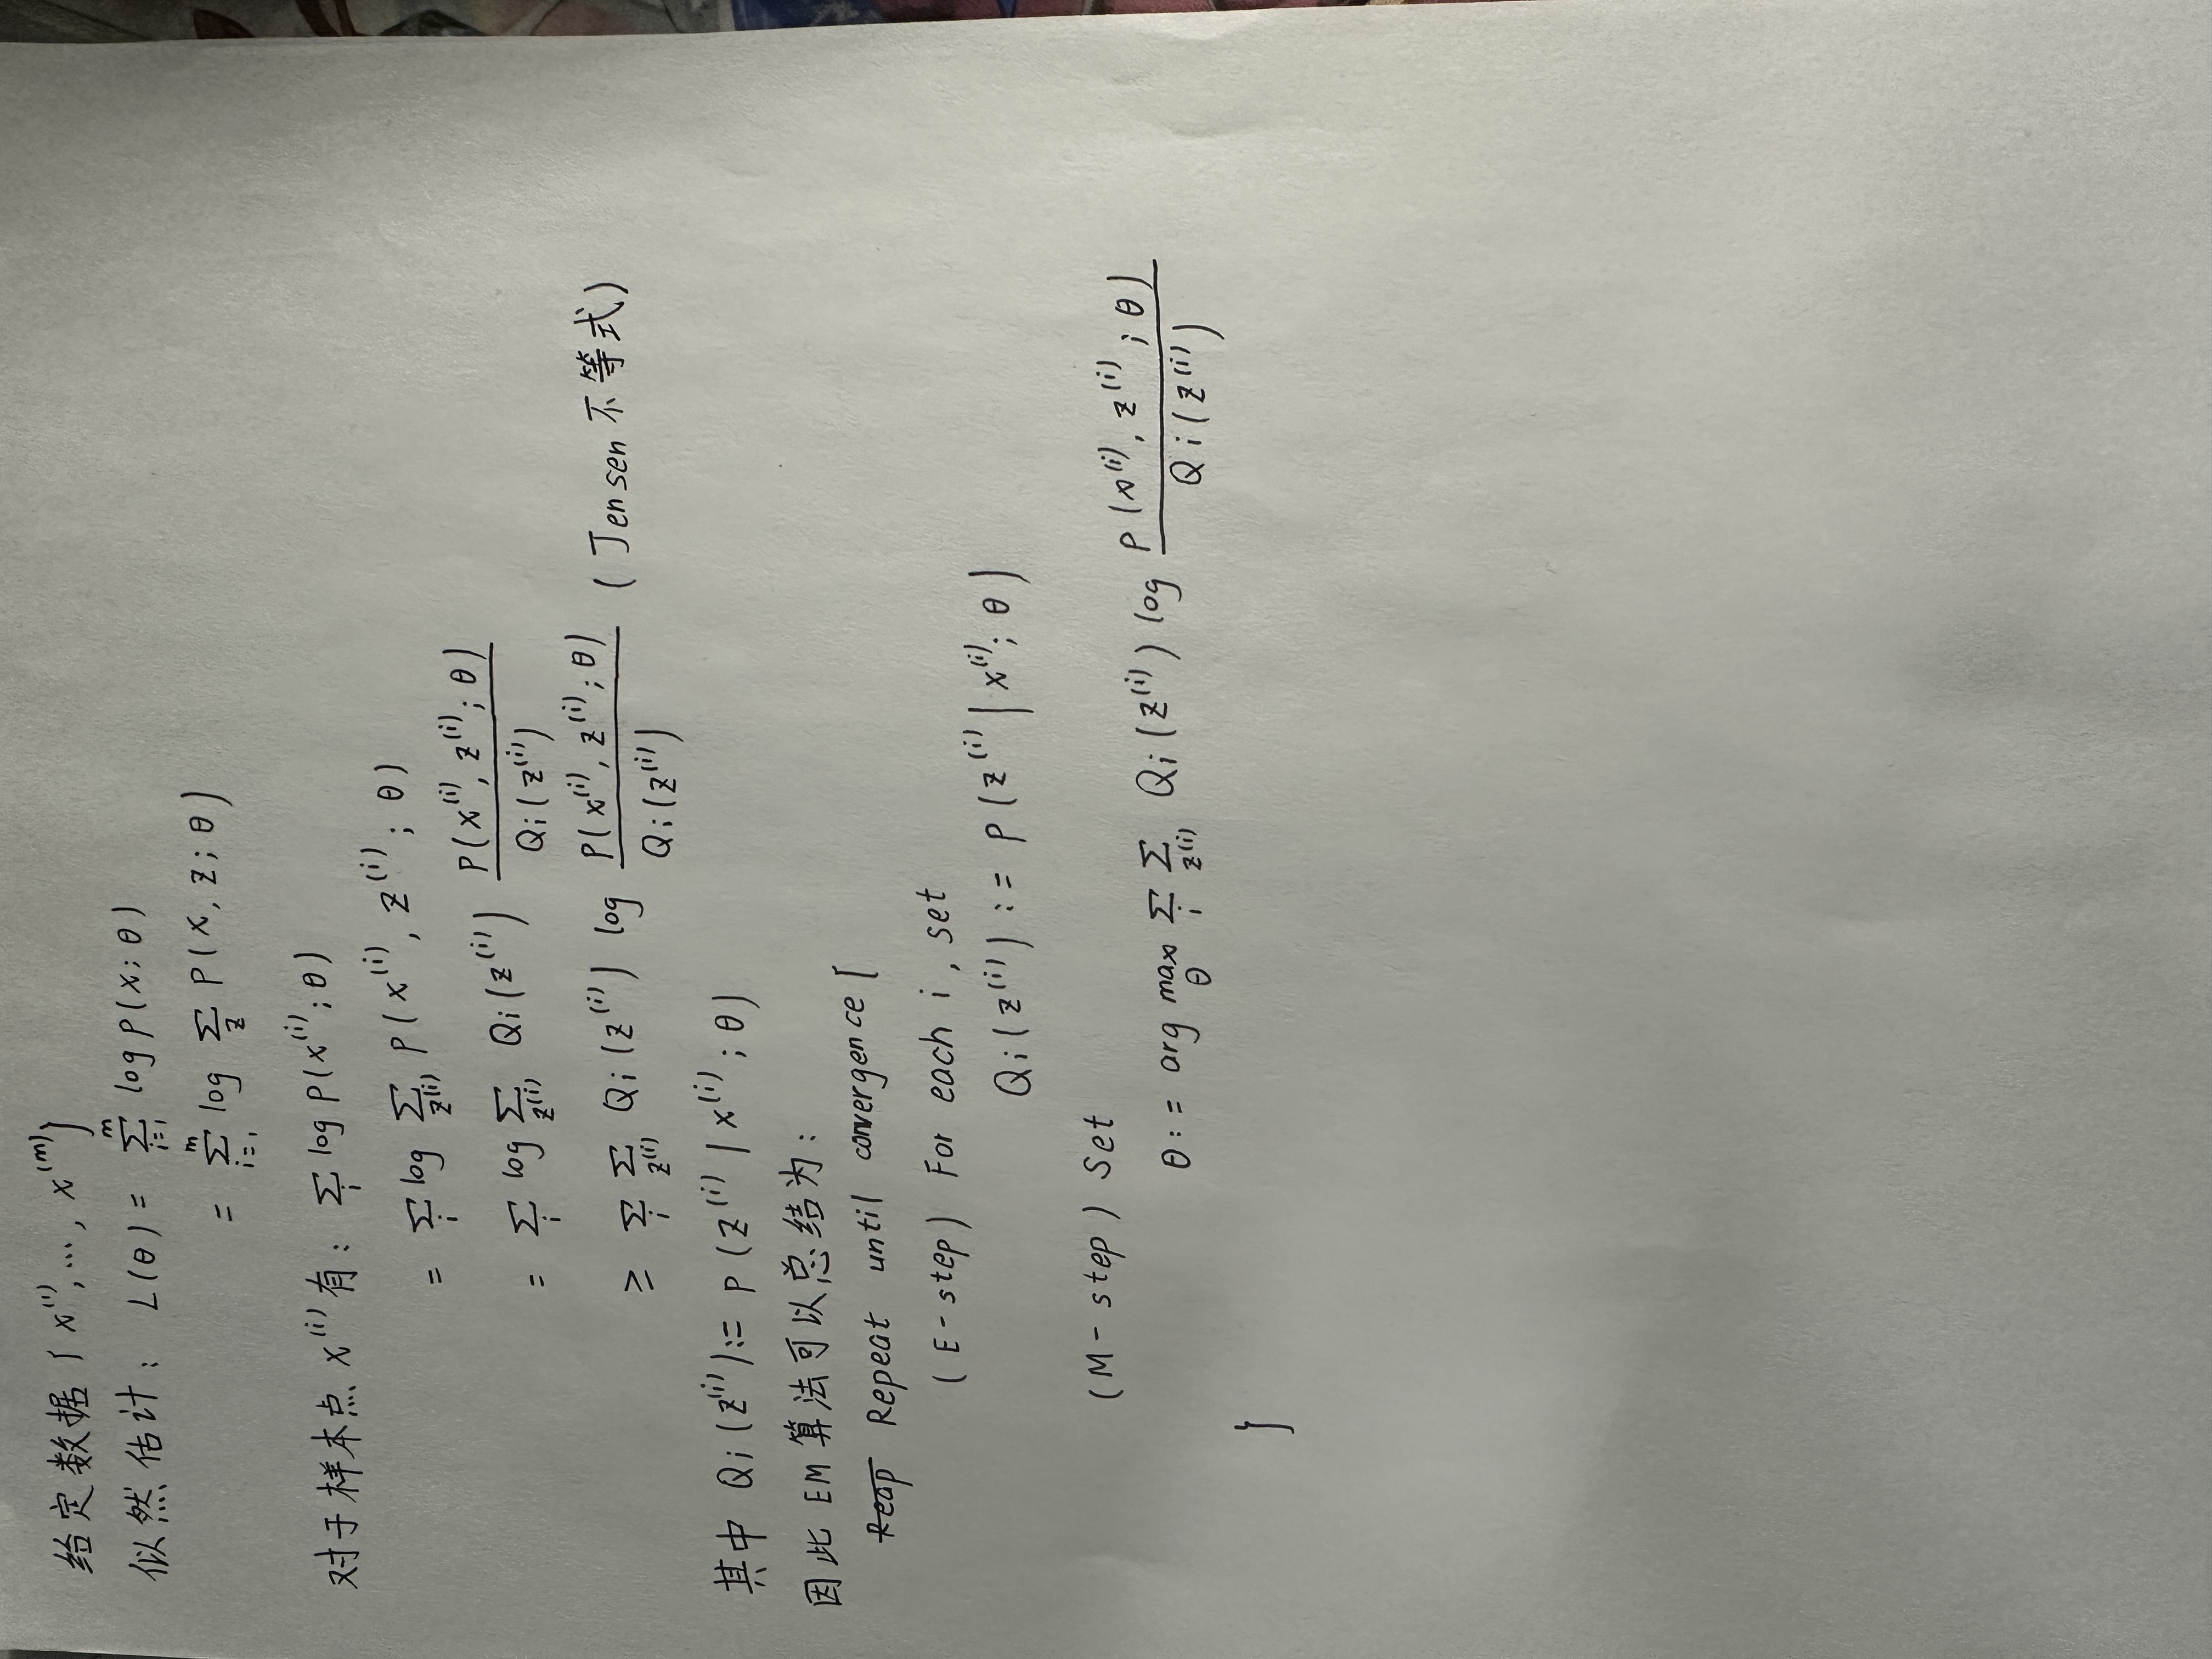 给定数据 { x^(1), ..., x^(m) }
似然估计: L(θ) = Σ_{i=1}^{m} log p(x; θ)
= Σ_{i=1}^{m} log Σ_z p(x, z; θ)
对于样本点 x^(i) 有: Σ_i log p(x^(i); θ)
= Σ_i log Σ_{z^(i)} p(x^(i), z^(i); θ)
= Σ_i log Σ_{z^(i)} Q_i(z^(i)) \frac{p(x^(i), z^(i); θ)}{Q_i(z^(i))}
≥ Σ_i Σ_{z^(i)} Q_i(z^(i)) log \frac{p(x^(i), z^(i); θ)}{Q_i(z^(i))} (Jensen不等式)
其中 Q_i(z^(i)) := p(z^(i) | x^(i); θ)
因此 EM 算法可以总结为:
~~Reap~~ Repeat until convergence {
(E-step) For each i, set
Q_i(z^(i)) := p(z^(i) | x^(i); θ)
(M-step) Set
θ := arg max_θ Σ_i Σ_{z^(i)} Q_i(z^(i)) log \frac{p(x^(i), z^(i); θ)}{Q_i(z^(i))}
}